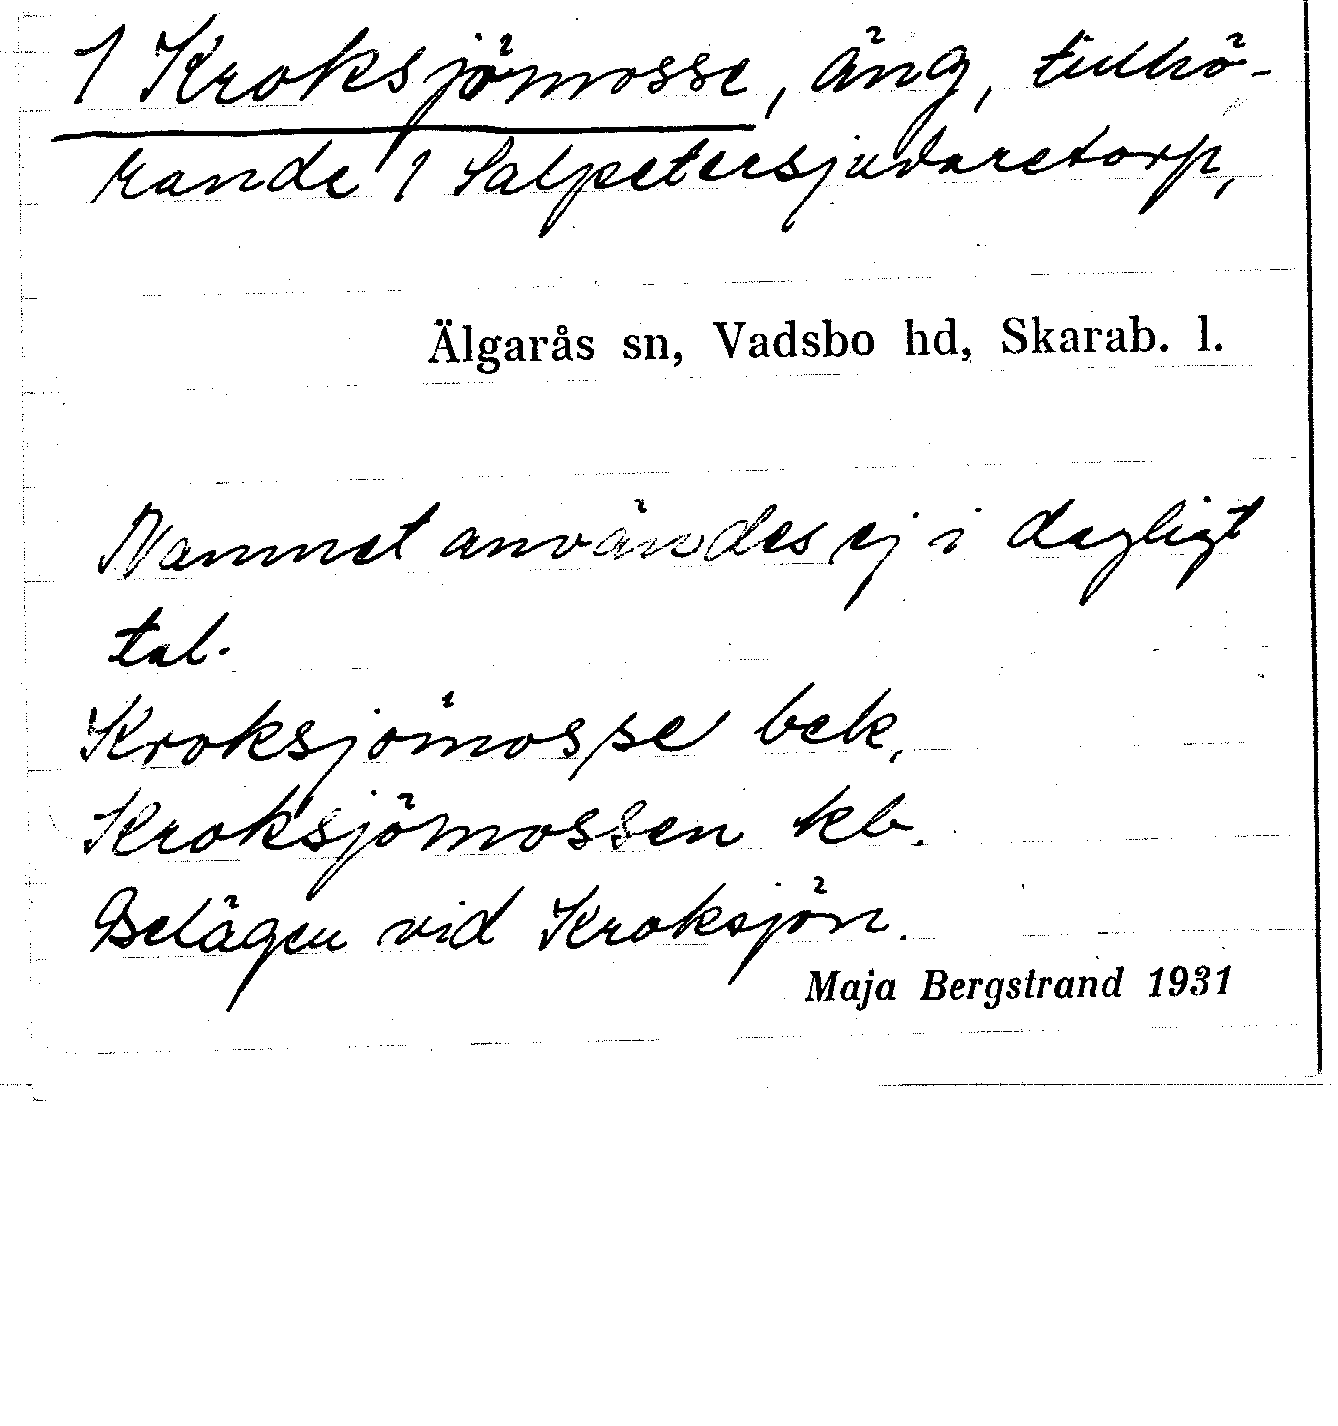 1 Kroksjömosse, äng, tillhö-
rande 1 Salpetersjudaretorp,
Älgarås sn, Vadsbo hd, Skarab. l.
Namnet användes ej i dagligt
tal.
Kroksjömosse bek,
Kroksjömossen kb.
Belägen vid Kroksjön.
Maja Bergstrand 1931